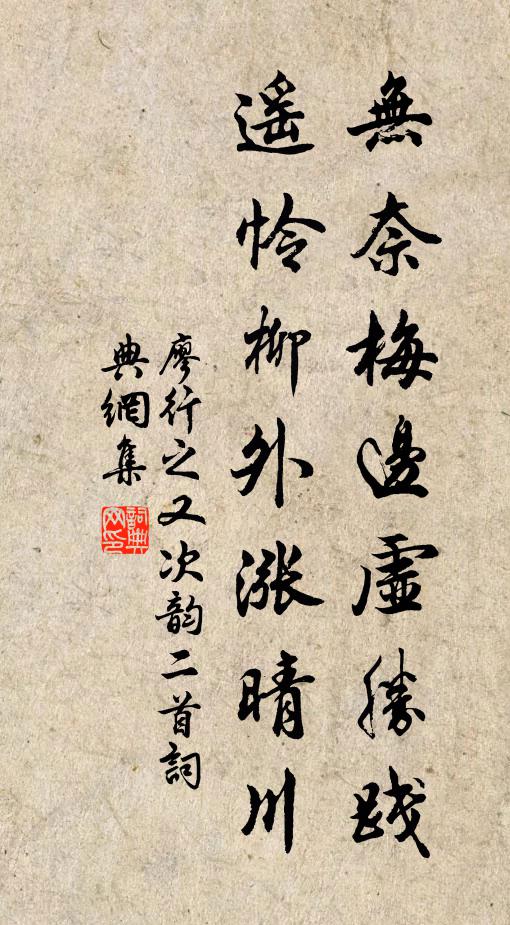 無奈梅邊虛勝踐
遥怜柳外漲晴川
廖行之又次韵二首詞
典網集
詞典网印